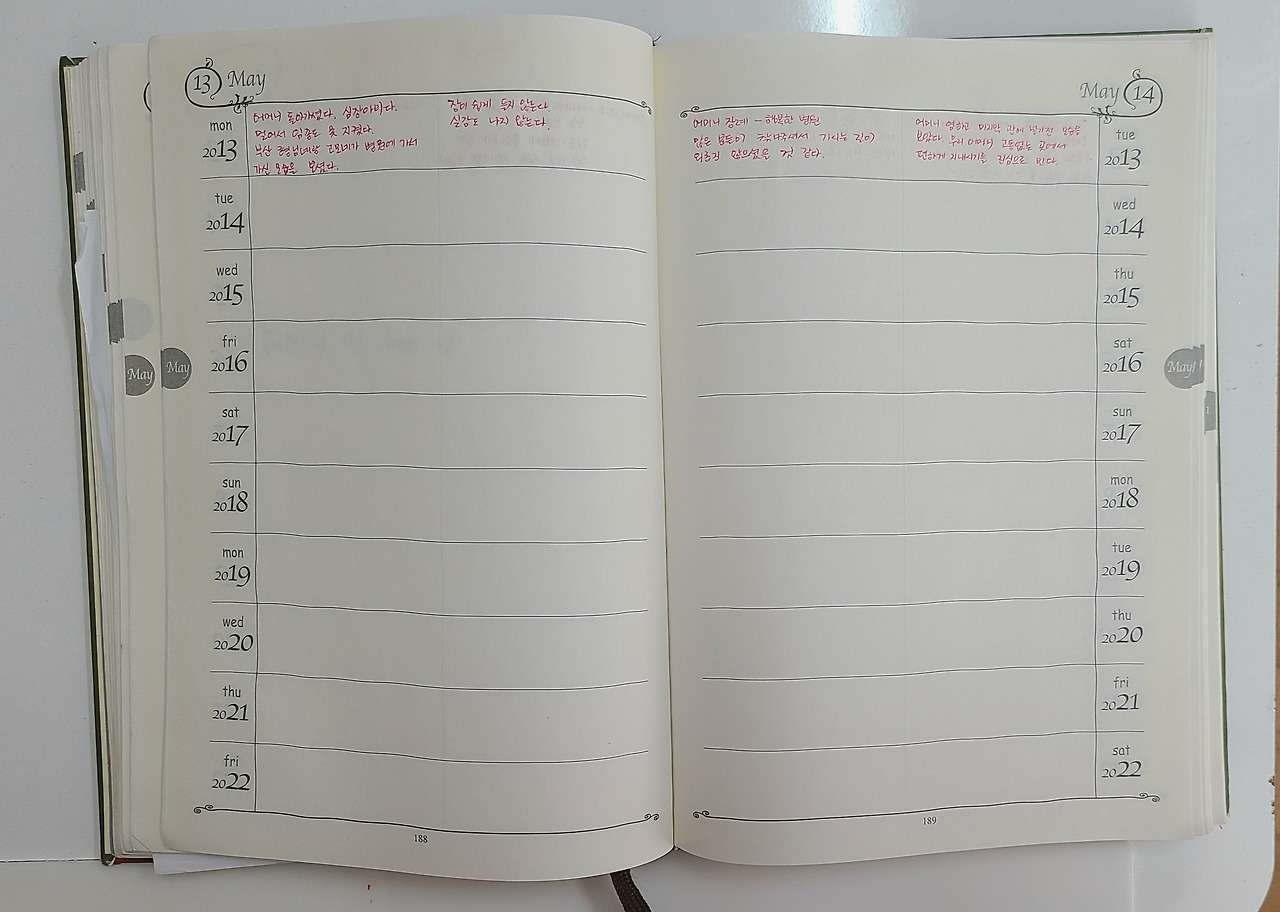 13 May
mon 2013
어머니 돌아가셨다. 심장마비다.
멀어서 임종도 못 지켰다.
부산 형님네랑 고모네가 병원에 가서
가신 모습을 보셨다.
잠이 쉽게 들지 않는다.
실감도 나지 않는다.
tue 2014
wed 2015
fri 2016
sat 2017
sun 2018
mon 2019
wed 2020
thu 2021
fri 2022
May
May
188
May 14
tue 2013
어머니 장례 - 행복한 병원
많은 분들이 와주셔서 가시는 길이
외롭진 않으셨을 것 같다.
어머니 염하고 마지막 관에 넣기전 모습을
보았다. 우리 어머니 고통없는 곳에서
편하게 지내시기를 진심으로 빈다.
wed 2014
thu 2015
sat 2016
sun 2017
mon 2018
tue 2019
thu 2020
fri 2021
sat 2022
May
189